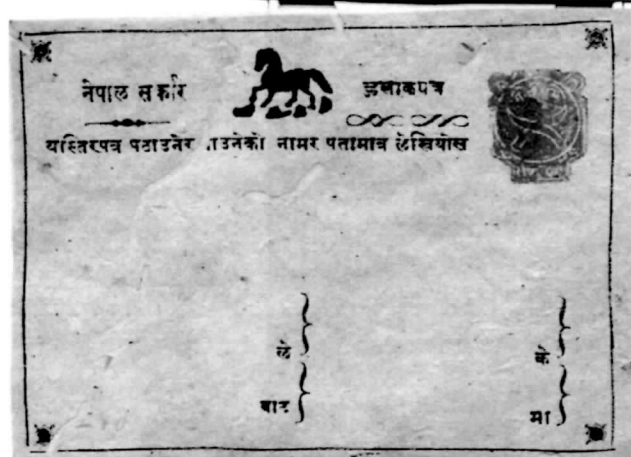 नेपाल सर्कार हुलाकपत्र
यस्तिरपत्र पठाउनेर पाउनेको नामर पतामात्र लेखियोस
ले के
बाट मा